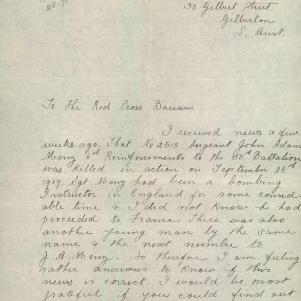 30 Gilbert Street
Gilberton
S. Aust.
To the Red Cross Bureau
I received news a few
weeks ago, That No 2618 Sergeant John Adam
Meng 6th Reinforcements to the 50th Battalion
was killed in action on September 26th
1917. Sgt Meng had been a bombing
Instructor in England for some consid
able time & I did not know he had
proceeded to France. There was also
another young man by the same
name & the next number to
J. A. Meng. So therfor I am feeling
rather anxious to know if this
news is correct. I would be most
grateful if you could find out